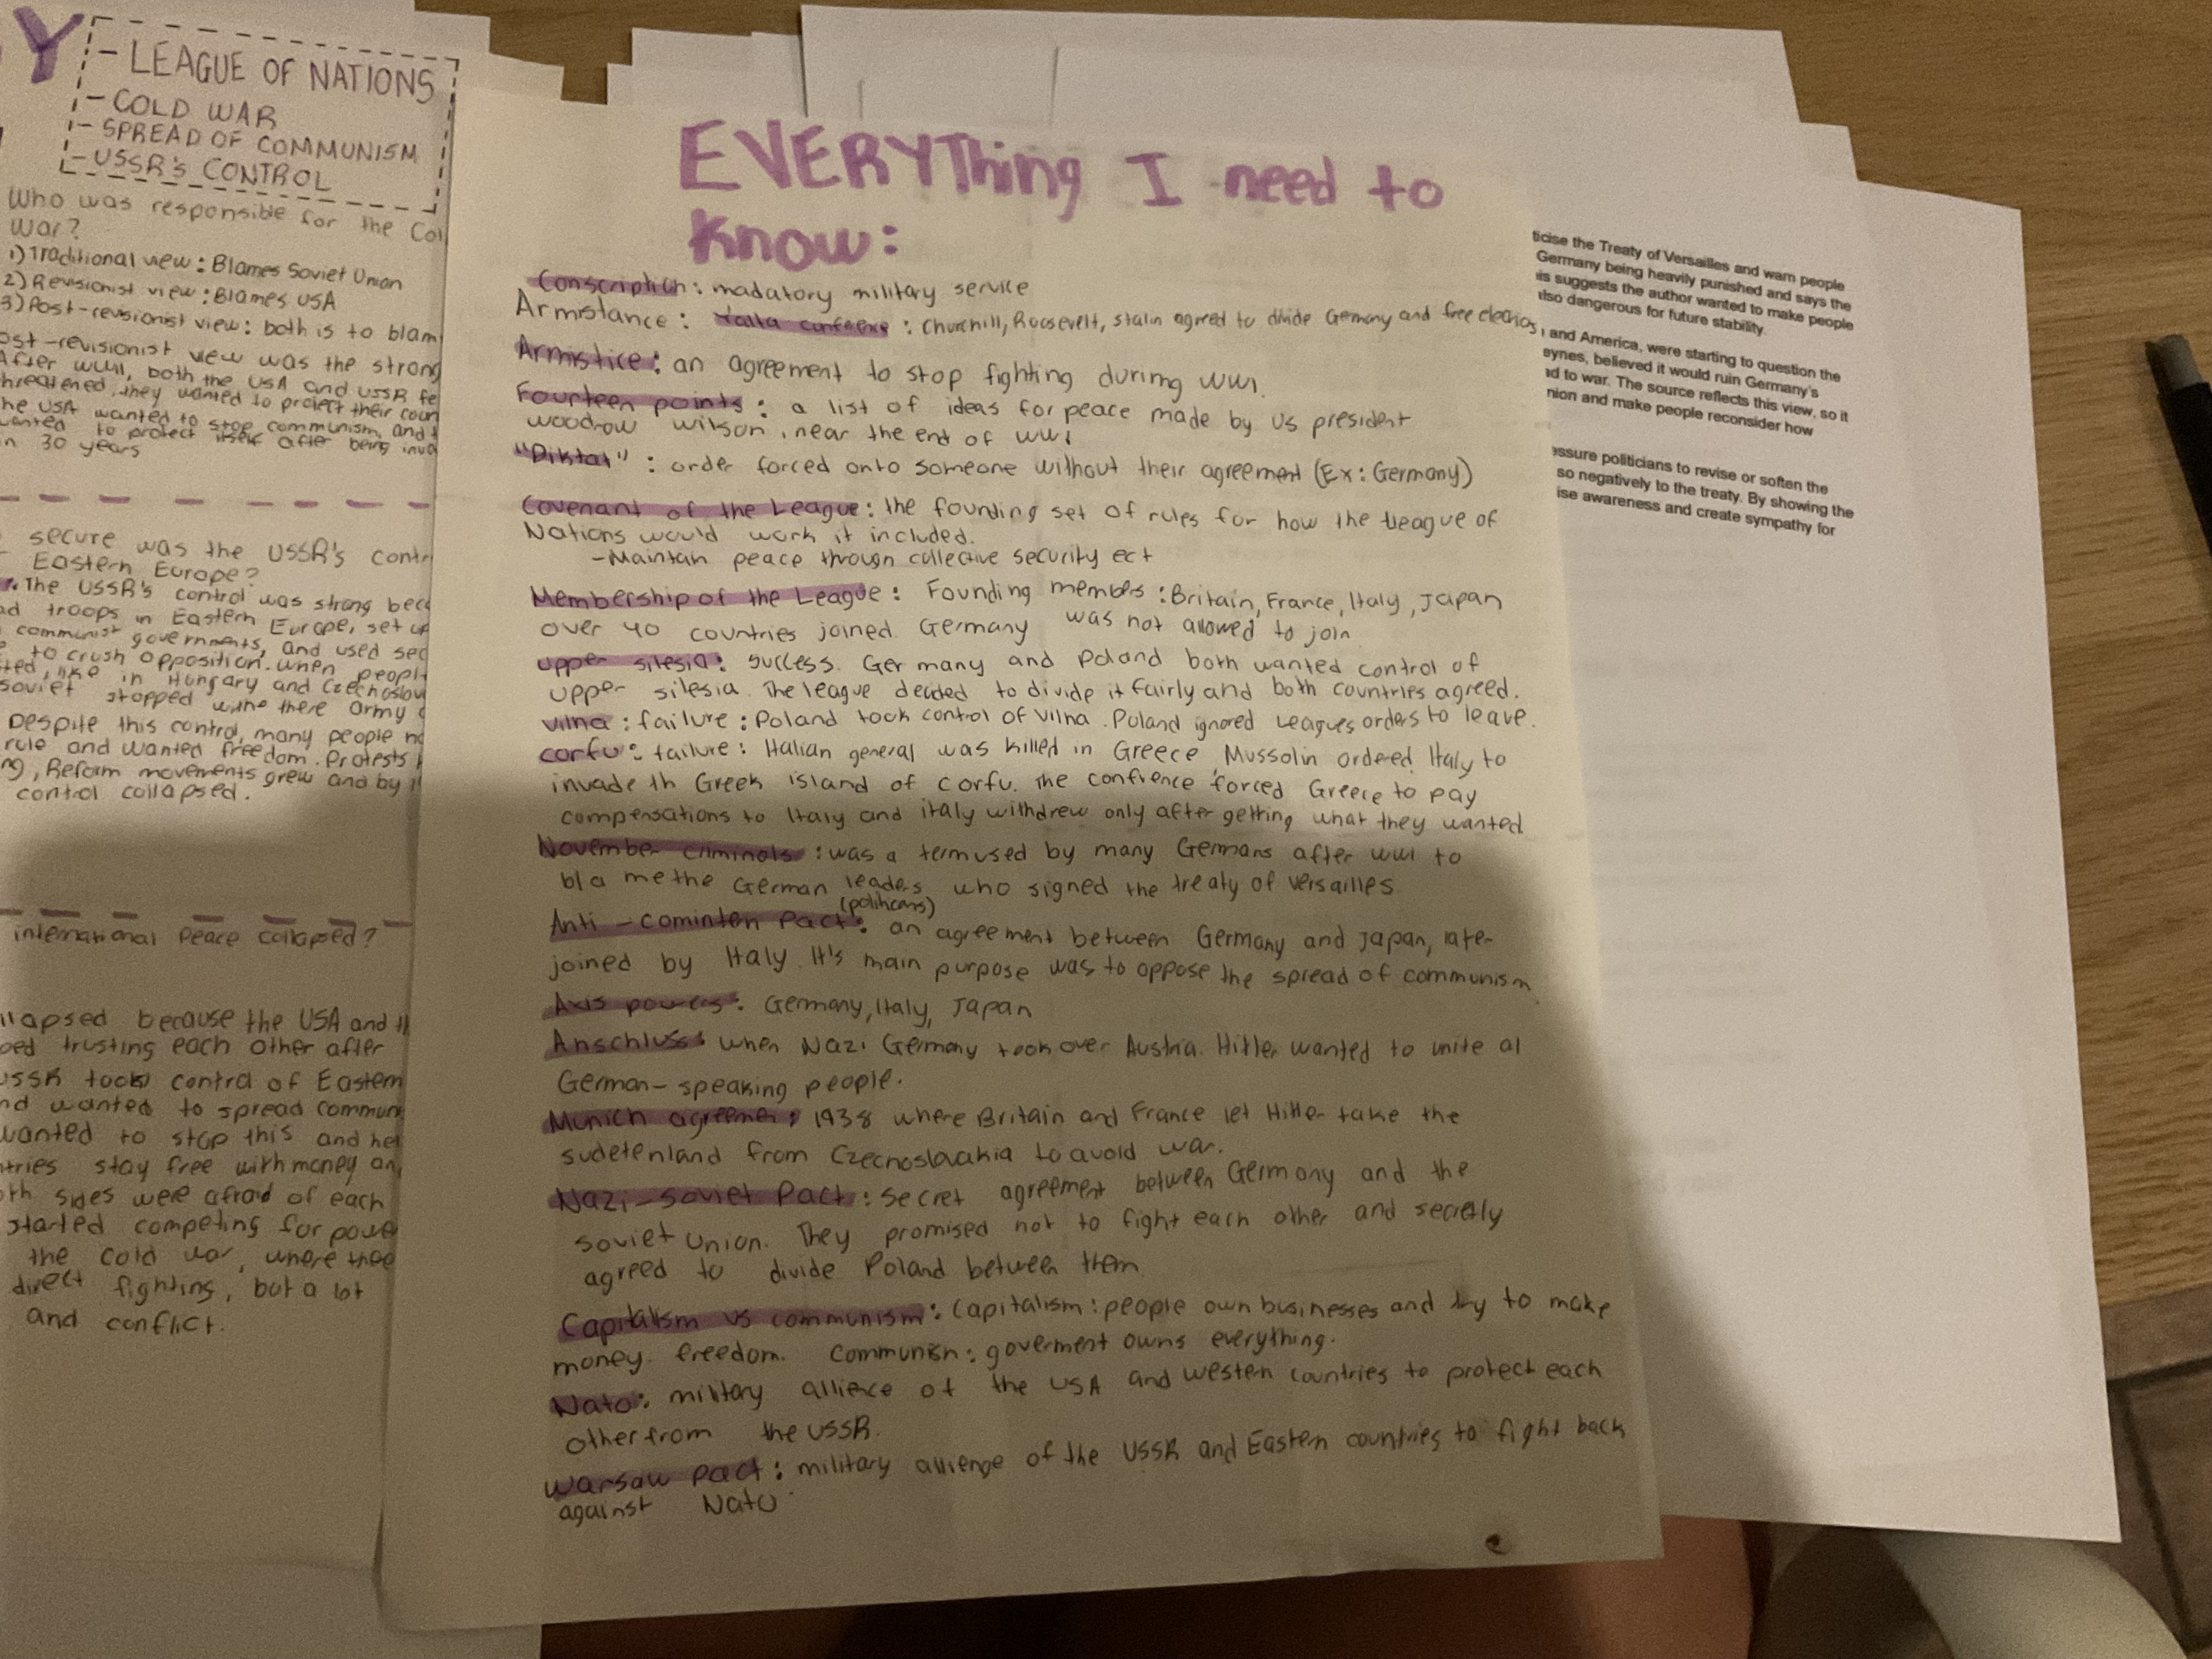 Y
- LEAGUE OF NATIONS
- COLD WAR
- SPREAD OF COMMUNISM
- USSR'S CONTROL
Who was responsible for the Col
War?
1) Traditional view: Blames Soviet Union
2) Revisionist view: Blames USA
3) Post-revisionist view: both is to blam
ost-revisionist view was the strong
After WWII, both the USA and USSR fe
hreatened, they wanted to protect their coun
he USA wanted to stop communism, and
wanted to protect itself after being inva
in 30 years
secure was the USSR's contr
Eastern Europe?
The USSR's control was strong bec
ad troops in Eastern Europe, set up
communist governments, and used sec
to crush opposition. when peopl
ted, like in Hungary and Czechoslov
soviet stopped withe there Army
Despite this control, many people
rule and wanted freedom. Protests
ng, Reform movements grew and by
control collapsed.
international Peace collapsed?
llapsed because the USA and
ped trusting each other after
USSR took control of Eastern
nd wanted to spread commun
wanted to stop this and hel
ntries stay free with money an
oth sides were afraid of each
started competing for powe
the cold war, where thee
direct fighting, but a lot
and conflict.
EVERYThing I need to
know:
Conscription: madatory military service
Armistance: Yalta confrence: Churchill, Roosevelt, Stalin agreed to divide Germany and free elections
Armistice: an agreement to stop fighting during WW1.
Fourteen points: a list of ideas for peace made by US president
woodrow wilson, near the end of WW1
"Diktat": order forced onto someone without their agreement (Ex: Germany)
Covenant of the League: the founding set of rules for how the League of
Nations would work it included.
-Maintain peace through collective security ect
Membership of the League: Founding members: Britain, France, Italy, Japan
over 40 countries joined. Germany was not allowed to join
upper silesia: success. Germany and Poland both wanted control of
upper silesia. The league decided to divide it fairly and both countries agreed.
vilna: failure: Poland took control of Vilna. Poland ignored Leagues orders to leave.
corfu: failure: Italian general was killed in Greece. Mussolin ordered Italy to
invade th Greek island of corfu. The confrence forced Greece to pay
compensations to Italy and italy withdrew only after getting what they wanted
November criminals: was a term used by many Germans after WW1 to
blame the German leaders who signed the treaty of versailles.
(politicans)
Anti-cominten Pact: an agreement between Germany and Japan, later
joined by Italy. It's main purpose was to oppose the spread of communism
Axis powers: Germany, Italy, Japan
Anschluss: when Nazi Germany took over Austria. Hitler wanted to unite al
German-speaking people.
Munich agreemen: 1938 where Britain and France let Hitler take the
sudetenland from Czechoslavakia to avoid war.
Nazi-soviet Pact: secret agreement between Germany and the
soviet union. They promised not to fight each other and secretly
agreed to divide Poland between them
Capitalism vs communism: Capitalism: people own businesses and try to make
money. freedom. Communism: goverment owns everything.
Nato: military allience of the USA and western countries to protect each
other from the USSR.
Warsaw Pact: military allience of the USSR and Eastern countries to fight back
against Nato
ticise the Treaty of Versailles and warn people
Germany being heavily punished and says the
is suggests the author wanted to make people
also dangerous for future stability.
and America, were starting to question the
eynes, believed it would ruin Germany's
ad to war. The source reflects this view, so it
nion and make people reconsider how
essure politicians to revise or soften the
so negatively to the treaty. By showing the
ise awareness and create sympathy for